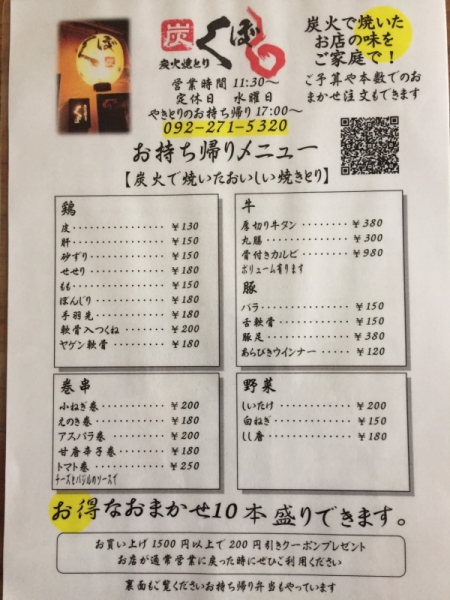 炭
くぼ
炭火焼とり
くぼ
る
営業時間 11:30〜
定休日 水曜日
やきとりのお持ち帰り 17:00〜
092-271-5320
炭火で焼いた
お店の味を
ご家庭で!
ご予算や本数でのお
まかせ注文もできます
お持ち帰りメニュー
【炭火で焼いたおいしい焼きとり】
鶏
皮・・・・・・・・・・・・・・・・ ¥130
肝・・・・・・・・・・・・・・・・ ¥150
砂ずり・・・・・・・・・・・・ ¥150
せせり・・・・・・・・・・・・ ¥180
もも・・・・・・・・・・・・・・ ¥150
ぼんじり・・・・・・・・・・ ¥180
手羽先・・・・・・・・・・・・ ¥180
軟骨入つくね・・・・・・ ¥200
ヤゲン軟骨・・・・・・・・ ¥180
牛
厚切り牛タン・・・・・・ ¥380
丸腸・・・・・・・・・・・・・・ ¥300
骨付きカルビ・・・・・・ ¥980
ボリューム有ります
豚
バラ・・・・・・・・・・・・・・ ¥150
舌軟骨・・・・・・・・・・・・ ¥150
豚足・・・・・・・・・・・・・・ ¥380
あらびきウインナー・・・・ ¥120
巻串
小ねぎ巻・・・・・・・・・・ ¥200
えのき巻・・・・・・・・・・ ¥180
アスパラ巻・・・・・・・・ ¥200
甘唐辛子巻・・・・・・・・ ¥180
トマト巻・・・・・・・・・・ ¥250
チーズとバジルのソースで
野菜
しいたけ・・・・・・・・・・ ¥200
白ねぎ・・・・・・・・・・・・ ¥150
しし唐・・・・・・・・・・・・ ¥180
お得なおまかせ10本盛りできます。
お買い上げ 1500 円以上で 200 円引きクーポンプレゼント
お店が通常営業に戻った時にぜひご利用ください
裏面もご覧くださいお持ち帰り弁当もやっています